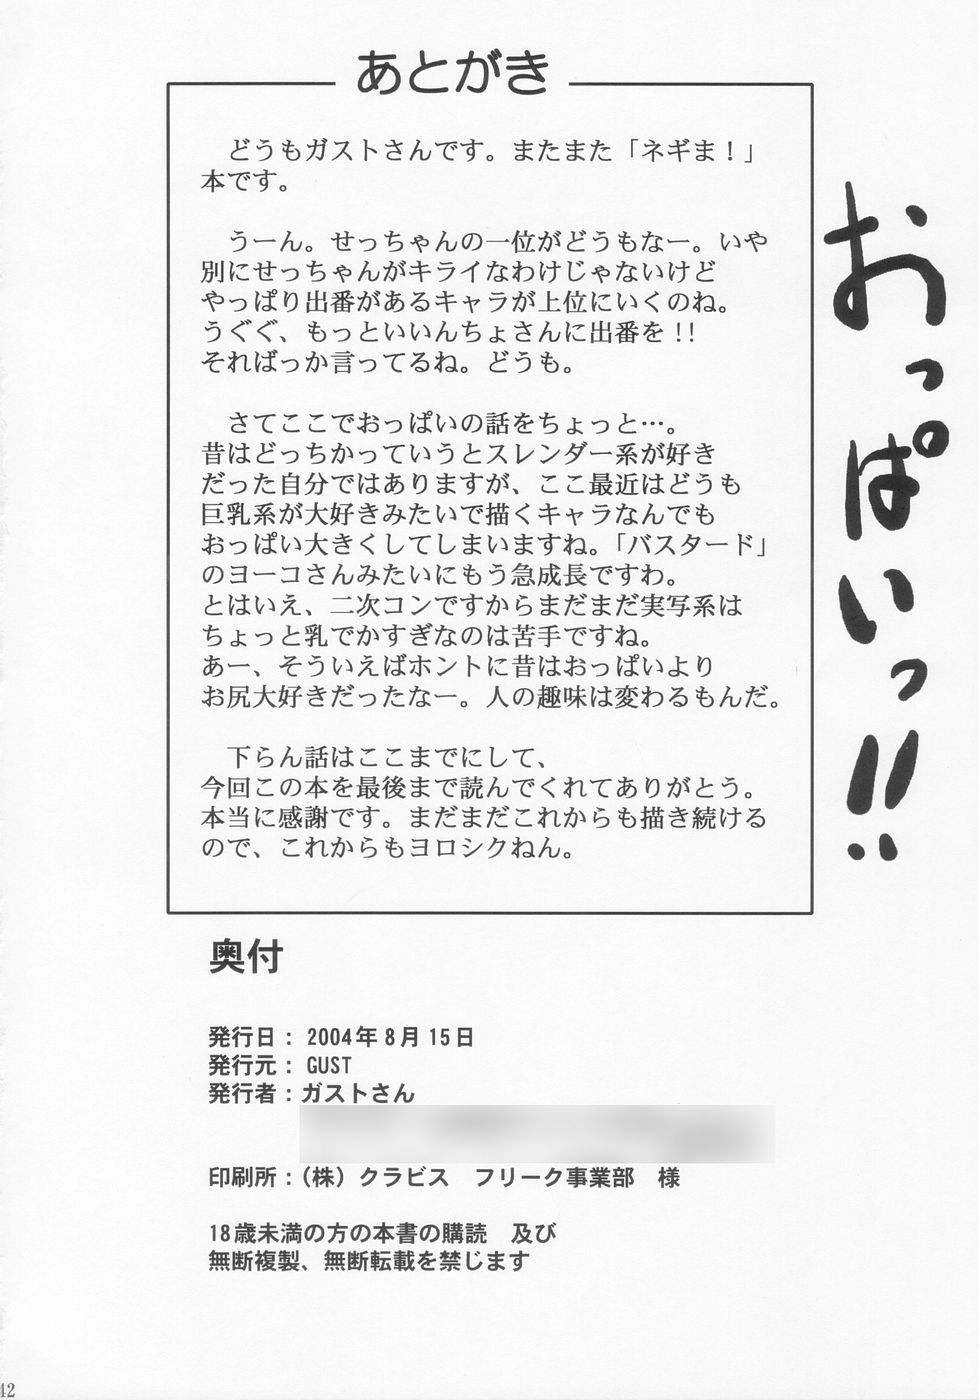 あとがき
どうもガストさんです。またまた「ネギま！」
本です。
うーん。せっちゃんの一位がどうもなー。いや
別にせっちゃんがキライなわけじゃないけど
やっぱり出番があるキャラが上位にいくのね。
うぐぐ、もっといいんちょさんに出番を!!
そればっか言ってるね。どうも。
さてここでおっぱいの話をちょっと…。
昔はどっちかっていうとスレンダー系が好き
だった自分ではありますが、ここ最近はどうも
巨乳系が大好きみたいで描くキャラなんでも
おっぱい大きくしてしまいますね。「バスタード」
のヨーコさんみたいにもう急成長ですわ。
とはいえ、二次コンですからまだまだ実写系は
ちょっと乳でかすぎなのは苦手ですね。
あー、そういえばホントに昔はおっぱいより
お尻大好きだったなー。人の趣味は変わるもんだ。
下らん話はここまでにして、
今回この本を最後まで読んでくれてありがとう。
本当に感謝です。まだまだこれからも描き続ける
ので、これからもヨロシクねん。
おっぱいっ!!
奥付
発行日：2004年8月15日
発行元：GUST
発行者：ガストさん
印刷所：（株）クラビス　フリーク事業部　様
18歳未満の方の本書の購読　及び
無断複製、無断転載を禁じます
42